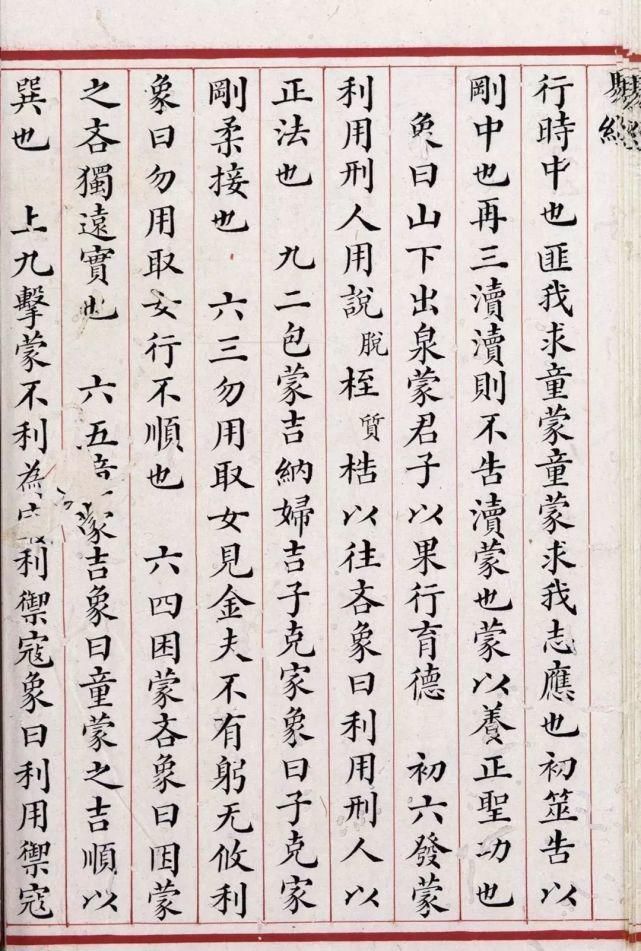 經
行時中也匪我求童蒙童蒙求我志應也初筮告以
剛中也再三瀆瀆則不告瀆蒙也蒙以養正聖功也
象曰山下出泉蒙君子以果行育德　初六發蒙
利用刑人用說脫桎質梏以往吝象曰利用刑人以
正法也　九二包蒙吉納婦吉子克家象曰子克家
剛柔接也　六三勿用取女見金夫不有躬无攸利
象曰勿用取女行不順也　六四困蒙吝象曰困蒙
之吝獨遠實也　六五童蒙吉象曰童蒙之吉順以
巽也　上九擊蒙不利為寇利禦寇象曰利用禦寇